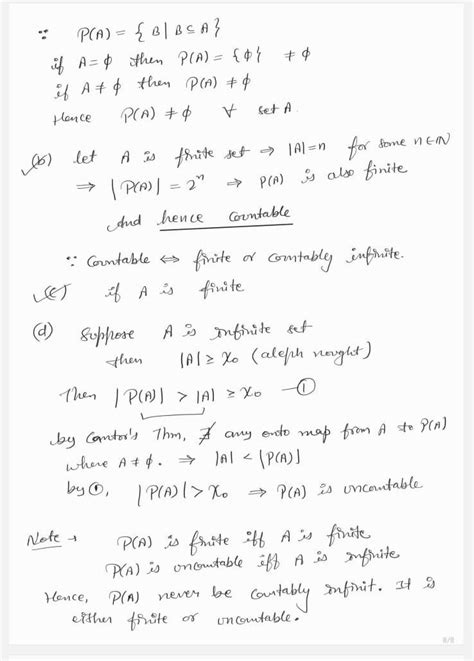 ∵ P(A) = { B | B ⊆ A }
if A = ϕ then P(A) = {ϕ} ≠ ϕ
if A ≠ ϕ then P(A) ≠ ϕ
Hence P(A) ≠ ϕ ∀ set A.
(b) let A is finite set ⇒ |A|=n for some n∈ℕ
⇒ |P(A)| = 2ⁿ ⇒ P(A) is also finite
And hence countable
∵ Countable ⇔ finite or countably infinite.
(c) if A is finite
(d) Suppose A is infinite set
then |A| ≥ χ₀ (aleph nought)
Then |P(A)| > |A| ≥ χ₀ —①
by Cantor's Thm, ∄ any onto map from A to P(A)
where A ≠ ϕ. ⇒ |A| < |P(A)|
by ①, |P(A)| > χ₀ ⇒ P(A) is uncountable
Note → P(A) is finite iff A is finite
P(A) is uncountable iff A is infinite
Hence, P(A) never be countably infinit. It is
either finite or uncountable.
8/8